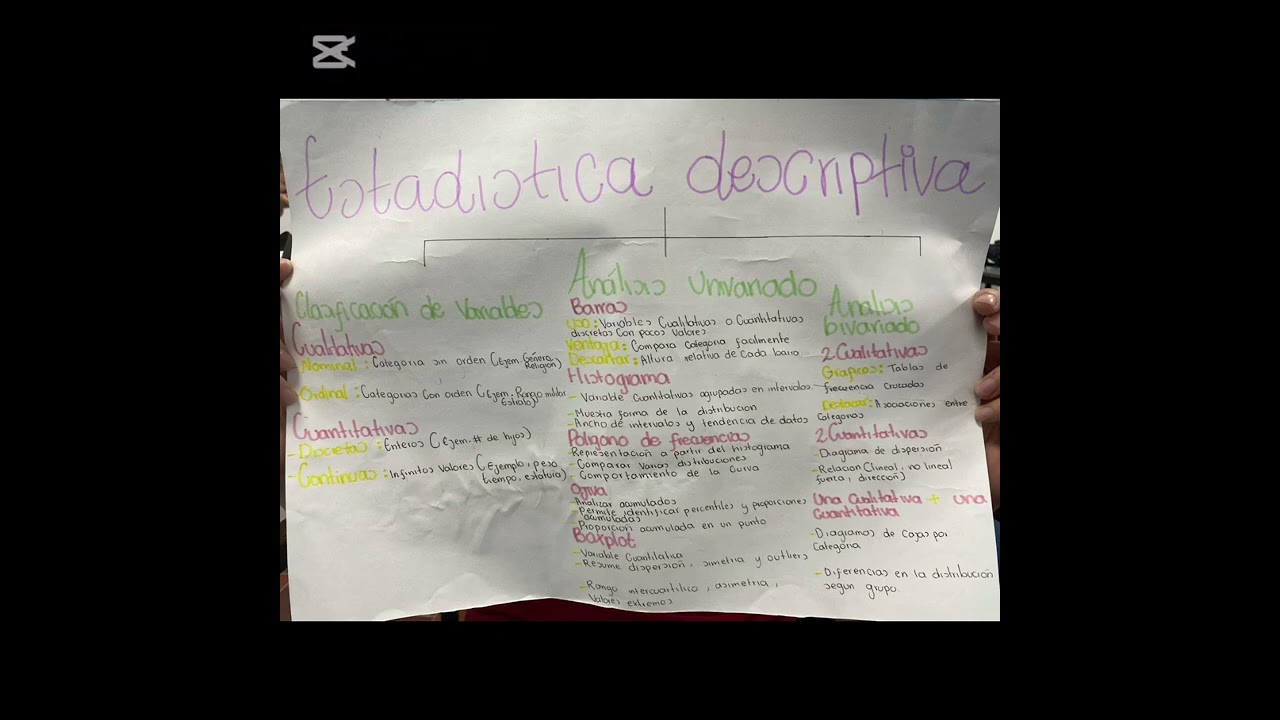 Estadistica descriptiva
Clasificación de Variables
Cualitativas
- Nominal: Categoria sin orden (Ejem Género, Religión)
- Ordinal: Categorias Con orden (Ejem. Rango militar Estrato)
Cuantitativas
- Discretas: Enteros (Ejem. # de hijos)
- Continuas: Infinitos Valores (Ejemplo, peso tiempo, estatura)
Análisis Univariado
Barras
Uso: Variables Cualitativas o Cuantitativas
discretas Con pocos Valores
Ventaja: Compara Categoria facilmente
Descartar: Altura relativa de Cada barra
Histograma
- Variable Cuantitativas agrupadas en intervalos
- Muestra forma de la distribucion
- Ancho de intervalos y tendencia de datos
Poligono de frecuencias
- Representación a partir del histograma
- Comparar Varias distribuciones
- Comportamiento de la Curva
Ojiva
- Analizar acumulados
- Permite identificar percentiles y proporciones
acumuladas
- Proporcion acumulada en un punto
Boxplot
- Variable Cuantitativa
- Resume dispersión, simetria y outliers
- Rango intercuartilico, asimetria,
Valores extremos
Analisis
bivariado
2 Cualitativas
Graficos: Tablas de
frecuencia cruzadas
Destacar: Asociaciones entre
Categorias
2 Cuantitativas
- Diagrama de dispersión
- Relacion (lineal, no lineal
fuerza, dirección)
Una Cualitativa + una
Cuantitativa
- Diagramas de Cajas por
Categoria
- Diferencias en la distribución
segun grupo.